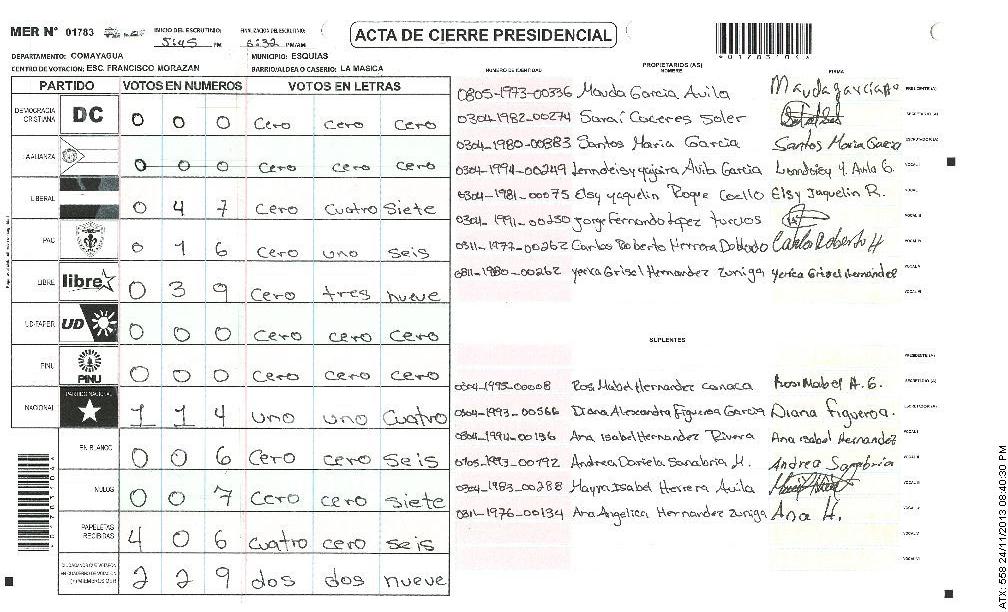 MER Nº 01783 INICIO DEL ESCRUTINIO: 5:45 PM FINALIZACION DEL ESCRUTINIO: 6:32 PM/AM
ACTA DE CIERRE PRESIDENCIAL
DEPARTAMENTO: COMAYAGUA MUNICIPIO: ESQUIAS
CENTRO DE VOTACION: ESC. FRANCISCO MORAZAN BARRIO/ALDEA O CASERIO: LA MASICA
PARTIDO VOTOS EN NUMEROS VOTOS EN LETRAS
DEMOCRACIA CRISTIANA DC 0 0 0 cero cero cero
LA ALIANZA 0 0 0 cero cero cero
LIBERAL 0 4 7 cero cuatro siete
PAC 0 1 6 cero uno seis
LIBRE libre 0 3 9 cero tres nueve
UD-FAPER UD 0 0 0 cero cero cero
PINU PINU 0 0 0 cero cero cero
NACIONAL PARTIDO NACIONAL 1 1 4 uno uno cuatro
EN BLANCO 0 0 6 cero cero seis
NULOS 0 0 7 cero cero siete
PAPELETAS RECIBIDAS 4 0 6 cuatro cero seis
CIUDADANOS QUE VOTARON EN CUADERNO DE VOTACION (+) MIEMBROS MER 2 2 9 dos dos nueve
PROPIETARIOS (AS)
NUMERO DE IDENTIDAD NOMBRE FIRMA
0805-1973-00336 Mauda Garcia Avila PRESIDENTE (A)
0304-1982-00274 Saraí Caceres Soler SECRETARIO (A)
0304-1980-00883 Santos Maria Garcia Santos Maria Garcia ESCRUTADOR (A)
0304-1994-00249 Avila Garcia VOCAL I
0304-1981-00075 Elsy yaquelin Roque Coello Elsy Jaquelin R. VOCAL II
0304-1991-00250 Jorge Fernando Lopez turcios VOCAL III
0311-1977-00262 Carlos Roberto Herrera Doblado Carlos Roberto H VOCAL IV
0311-1980-00262 yerica Grisel Hernandez zuniga yerica Grisel Hernandez VOCAL V
VOCAL VI
SUPLENTES
PRESIDENTE (A)
0304-1995-00008 Rosi Mabel Hernandez canaca Rosi Mabel H. C. SECRETARIO (A)
0304-1993-00566 Diana Alexandra Figueroa Garcia Diana Figueroa. ESCRUTADOR (A)
0304-1994-00136 Ana Isabel Hernandez Rivera Ana isabel Hernandez VOCAL I
0705-1993-00792 Andrea Daniela Sanabria M. Andrea Sanabria VOCAL II
0304-1983-00288 Mayra Isabel Herrera Avila VOCAL III
0311-1976-00134 Ana Angelica Hernandez zuniga Ana H. VOCAL IV
VOCAL V
VOCAL VI
ATX: 558 24/11/2013 08:40:30 PM